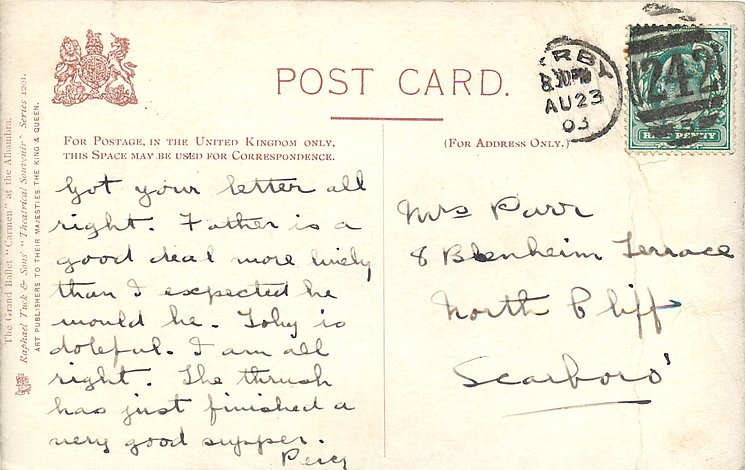 The Grand Ballet "Carmen" at the Alhambra.
Raphael Tuck & Sons' "Theatrical Souvenir" Series 1201.
ART PUBLISHERS TO THEIR MAJESTIES THE KING & QUEEN.
POST CARD.
FOR POSTAGE, IN THE UNITED KINGDOM ONLY,
THIS SPACE MAY BE USED FOR CORRESPONDENCE.
(FOR ADDRESS ONLY.)
RBY
8.30PM
AU 23
03
242
HALF PENNY
Got your letter all
right. Father is a
good deal more lively
than I expected he
would be. Toby is
doleful. I am all
right. The thrush
has just finished a
very good supper.
Percy
Mrs Parr
8 Blenheim Terrace
North Cliff
Scarboro'